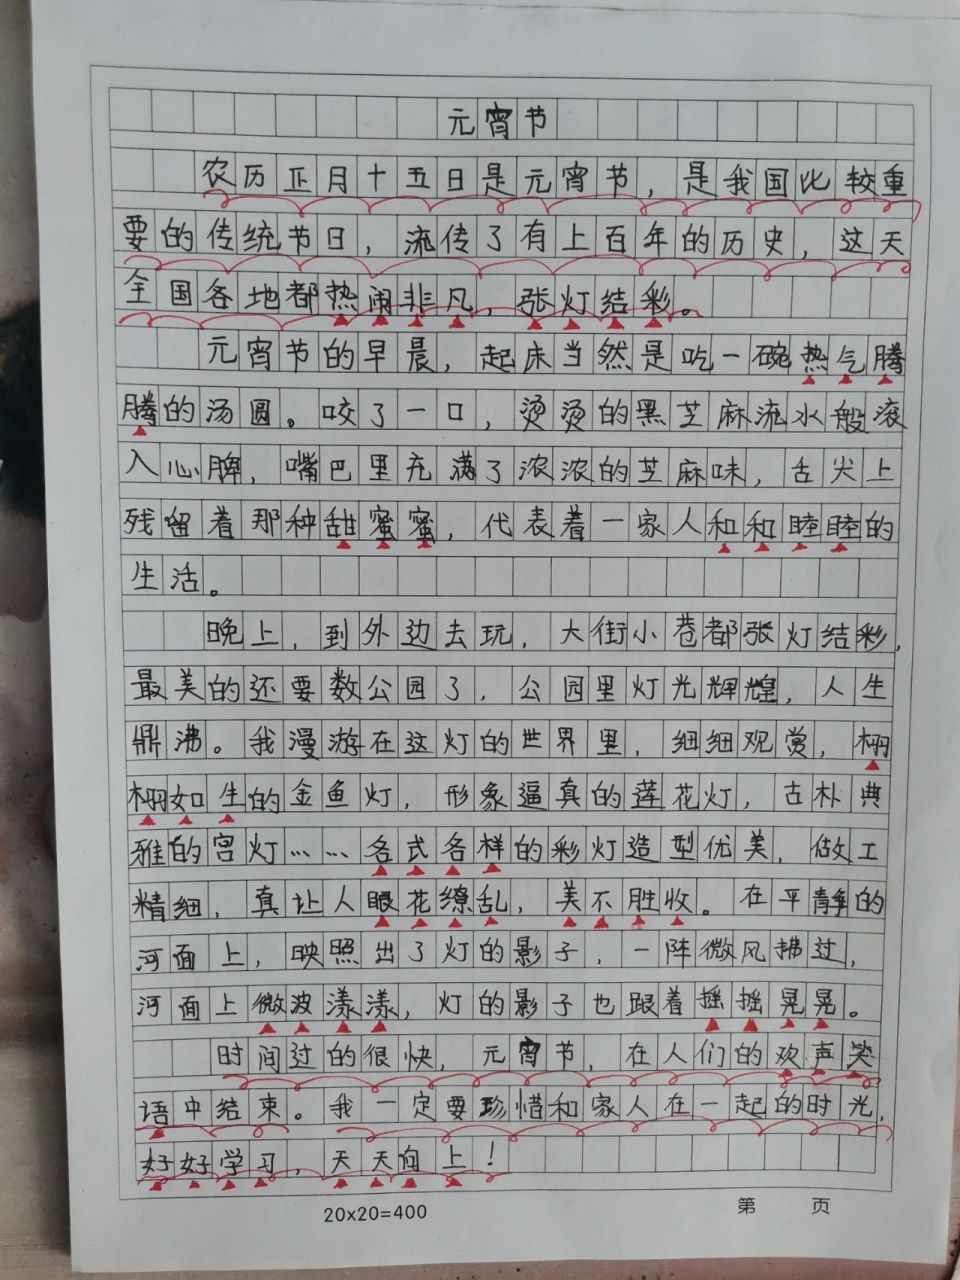 元宵节
农历正月十五日是元宵节，是我国比较重
要的传统节日，流传了有上百年的历史，这天
全国各地都热闹非凡，张灯结彩。
元宵节的早晨，起床当然是吃一碗热气腾
腾的汤圆。咬了一口，烫烫的黑芝麻流水般滚
入心脾，嘴巴里充满了浓浓的芝麻味，舌尖上
残留着那种甜蜜蜜，代表着一家人和和睦睦的
生活。
晚上，到外边去玩，大街小巷都张灯结彩，
最美的还要数公园了，公园里灯光辉煌，人生
鼎沸。我漫游在这灯的世界里，细细观赏，栩
栩如生的金鱼灯，形象逼真的莲花灯，古朴典
雅的宫灯……各式各样的彩灯造型优美，做工
精细，真让人眼花缭乱，美不胜收。在平静的
河面上，映照出了灯的影子，一阵微风拂过，
河面上微波漾漾，灯的影子也跟着摇摇晃晃。
时间过的很快，元宵节，在人们的欢声笑
语中结束。我一定要珍惜和家人在一起的时光，
好好学习，天天向上！
20×20=400
第 页